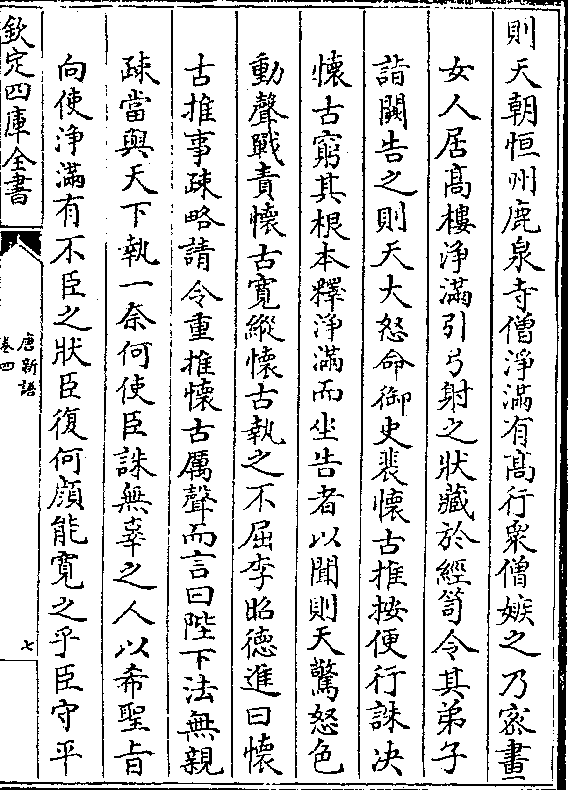 則天朝恒州鹿泉寺僧淨滿有髙行衆僧嫉之乃宻畫
女人居髙樓淨滿引弓射之狀藏於經笥令其弟子
詣闕告之則天大怒命御史裴懷古推按便行誅决
懷古窮其根本釋淨滿而坐告者以聞則天驚怒色
動聲戰責懷古寛縱懷古執之不屈李昭德進曰懷
古推事疎略請令重推懷古厲聲而言曰陛下法無親
疎當與天下執一奈何使臣誅無辜之人以希聖旨
向使淨滿有不臣之狀臣復何顔能寛之乎臣守平
欽定四庫全書
唐新語
卷四
七